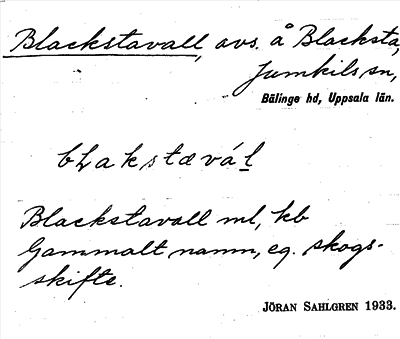 Blackstavall, avs. å Blacksta,
Jumkils sn,
Bälinge hd, Uppsala län.
bLakstæváḻ
Blackstavall ml, kb
Gammalt namn, eg. skogs-
skifte.
JÖRAN SAHLGREN 1933.